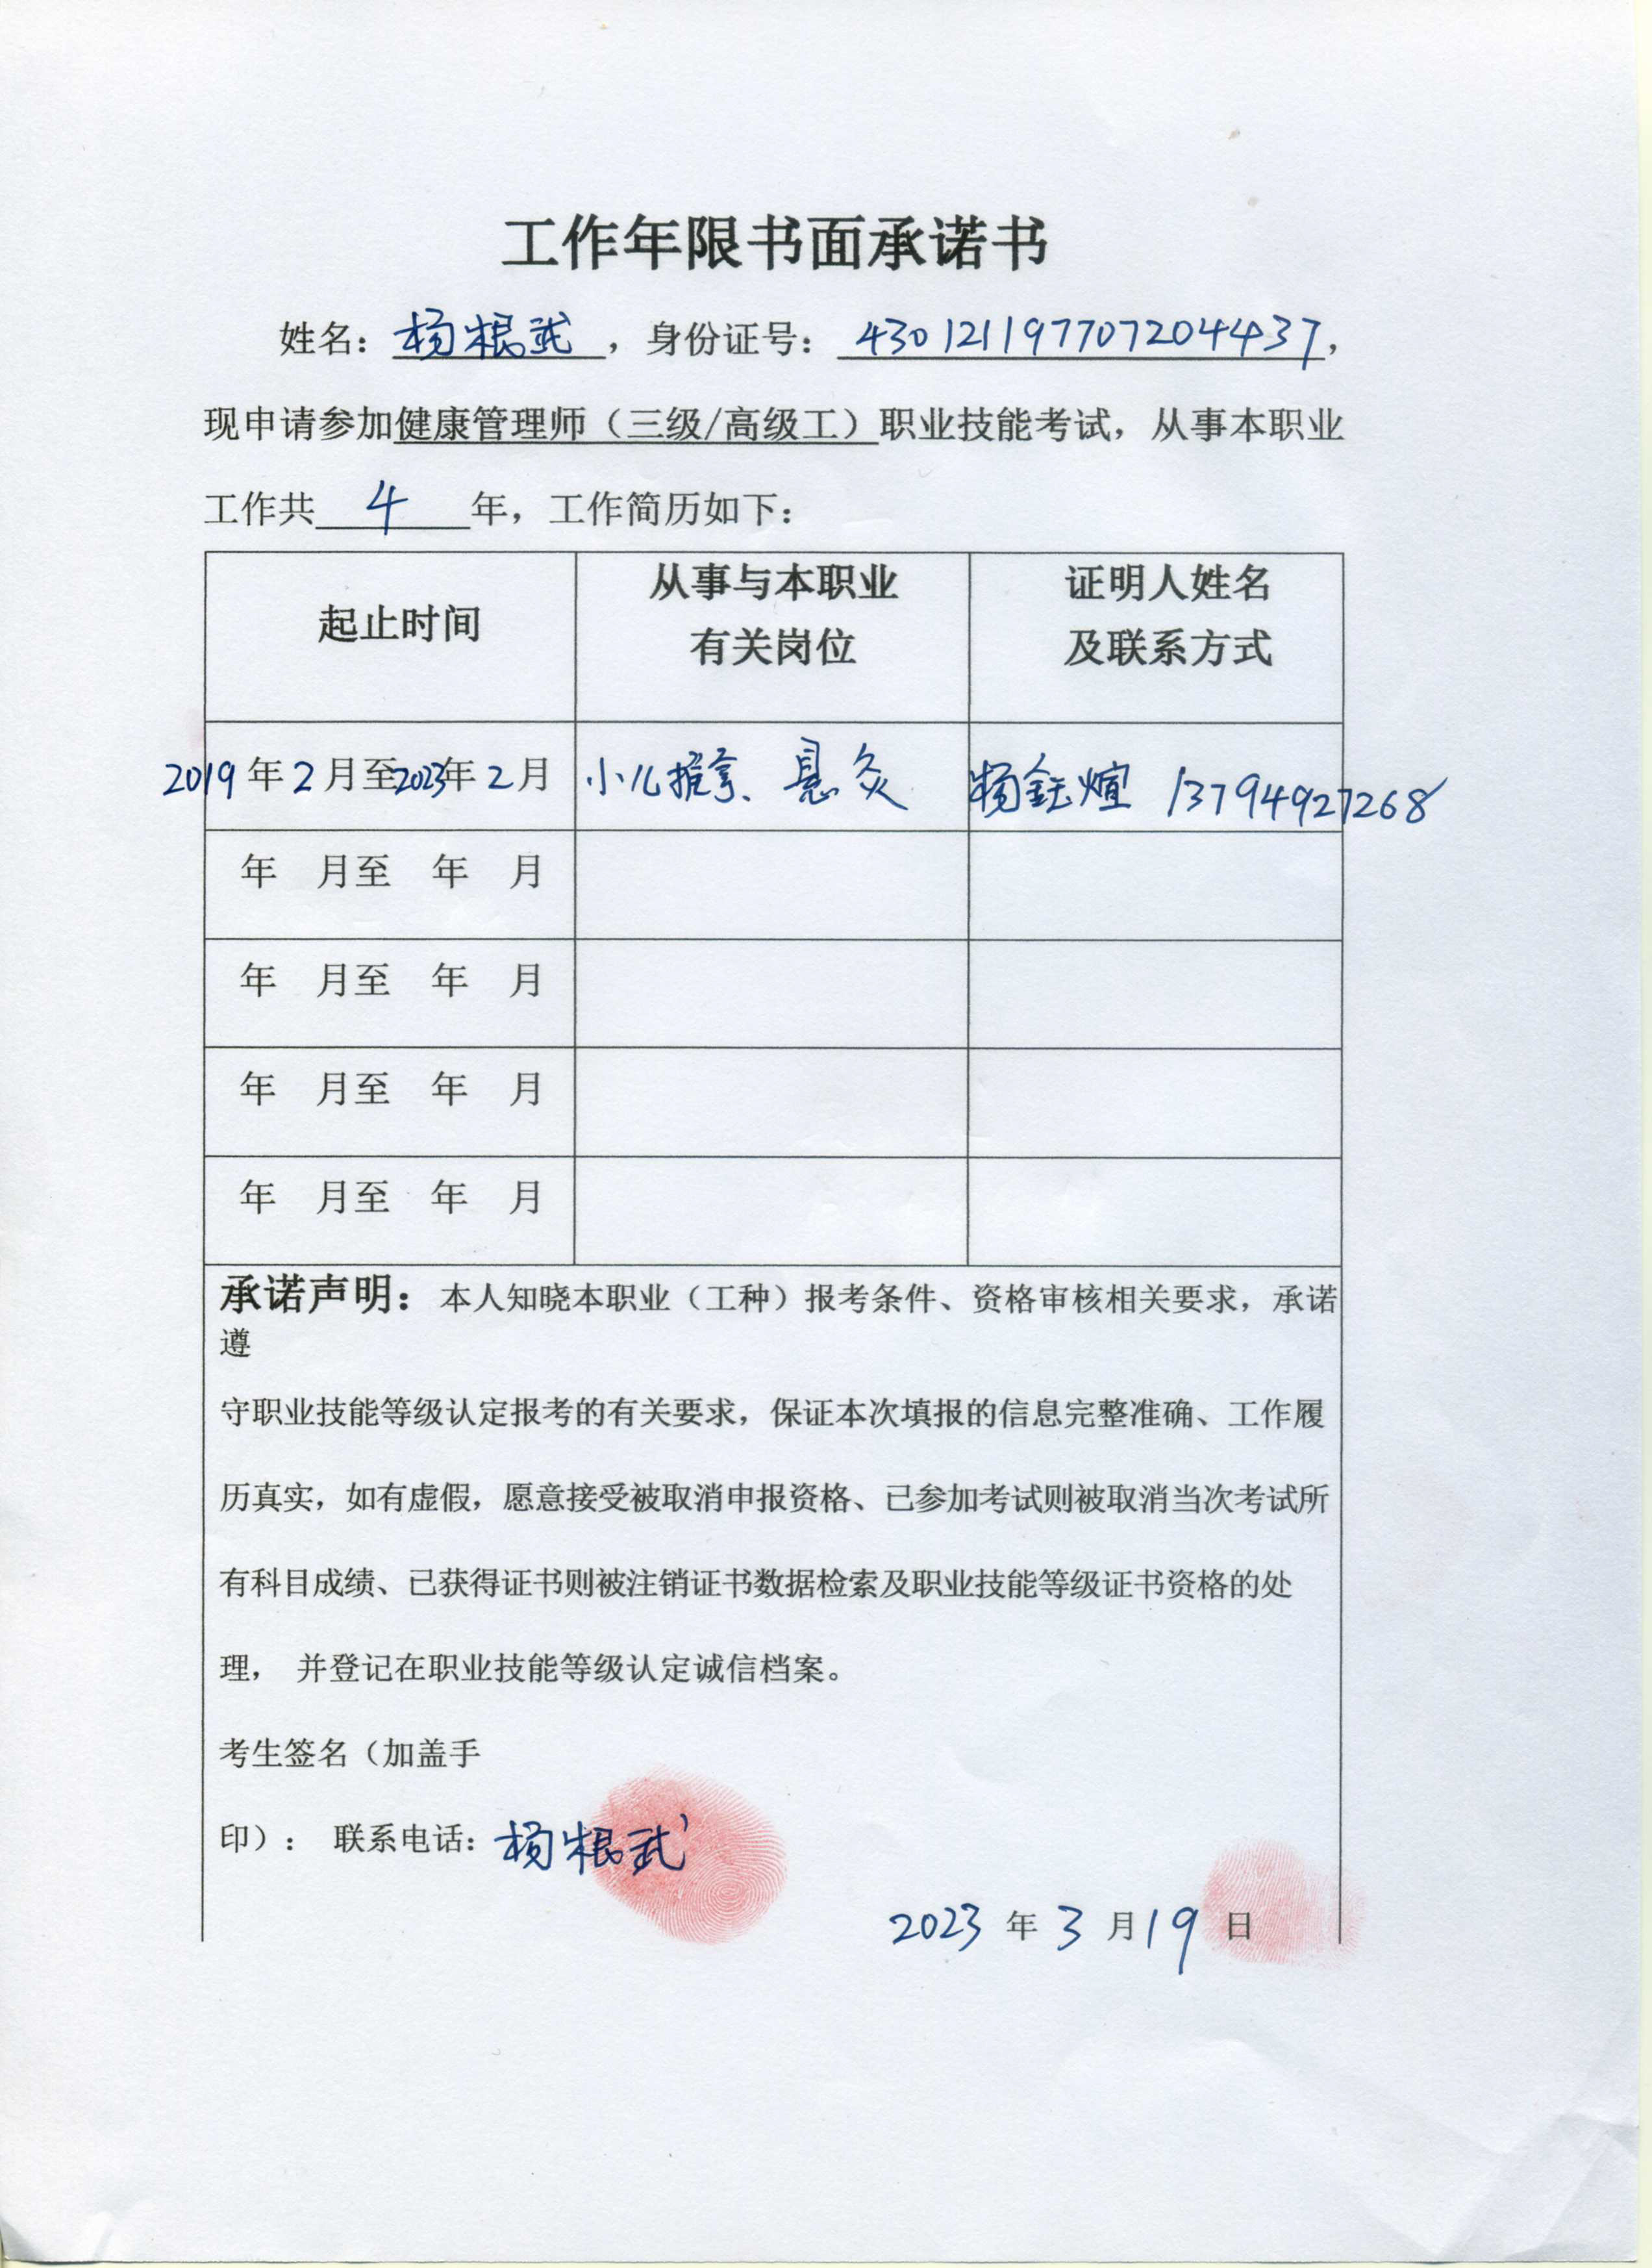 工作年限书面承诺书
姓名：杨根武，身份证号：430121197707204437，
现申请参加健康管理师（三级/高级工）职业技能考试，从事本职业
工作共 4 年，工作简历如下：
起止时间
从事与本职业
有关岗位
证明人姓名
及联系方式
2019年2月至2023年2月 小儿推拿、悬灸 杨钰煊 13794927268
年 月至 年 月
年 月至 年 月
年 月至 年 月
年 月至 年 月
承诺声明：本人知晓本职业（工种）报考条件、资格审核相关要求，承诺
遵
守职业技能等级认定报考的有关要求，保证本次填报的信息完整准确、工作履
历真实，如有虚假，愿意接受被取消申报资格、已参加考试则被取消当次考试所
有科目成绩、已获得证书则被注销证书数据检索及职业技能等级证书资格的处
理， 并登记在职业技能等级认定诚信档案。
考生签名（加盖手
印）： 联系电话：杨根武
2023 年 3 月 19 日